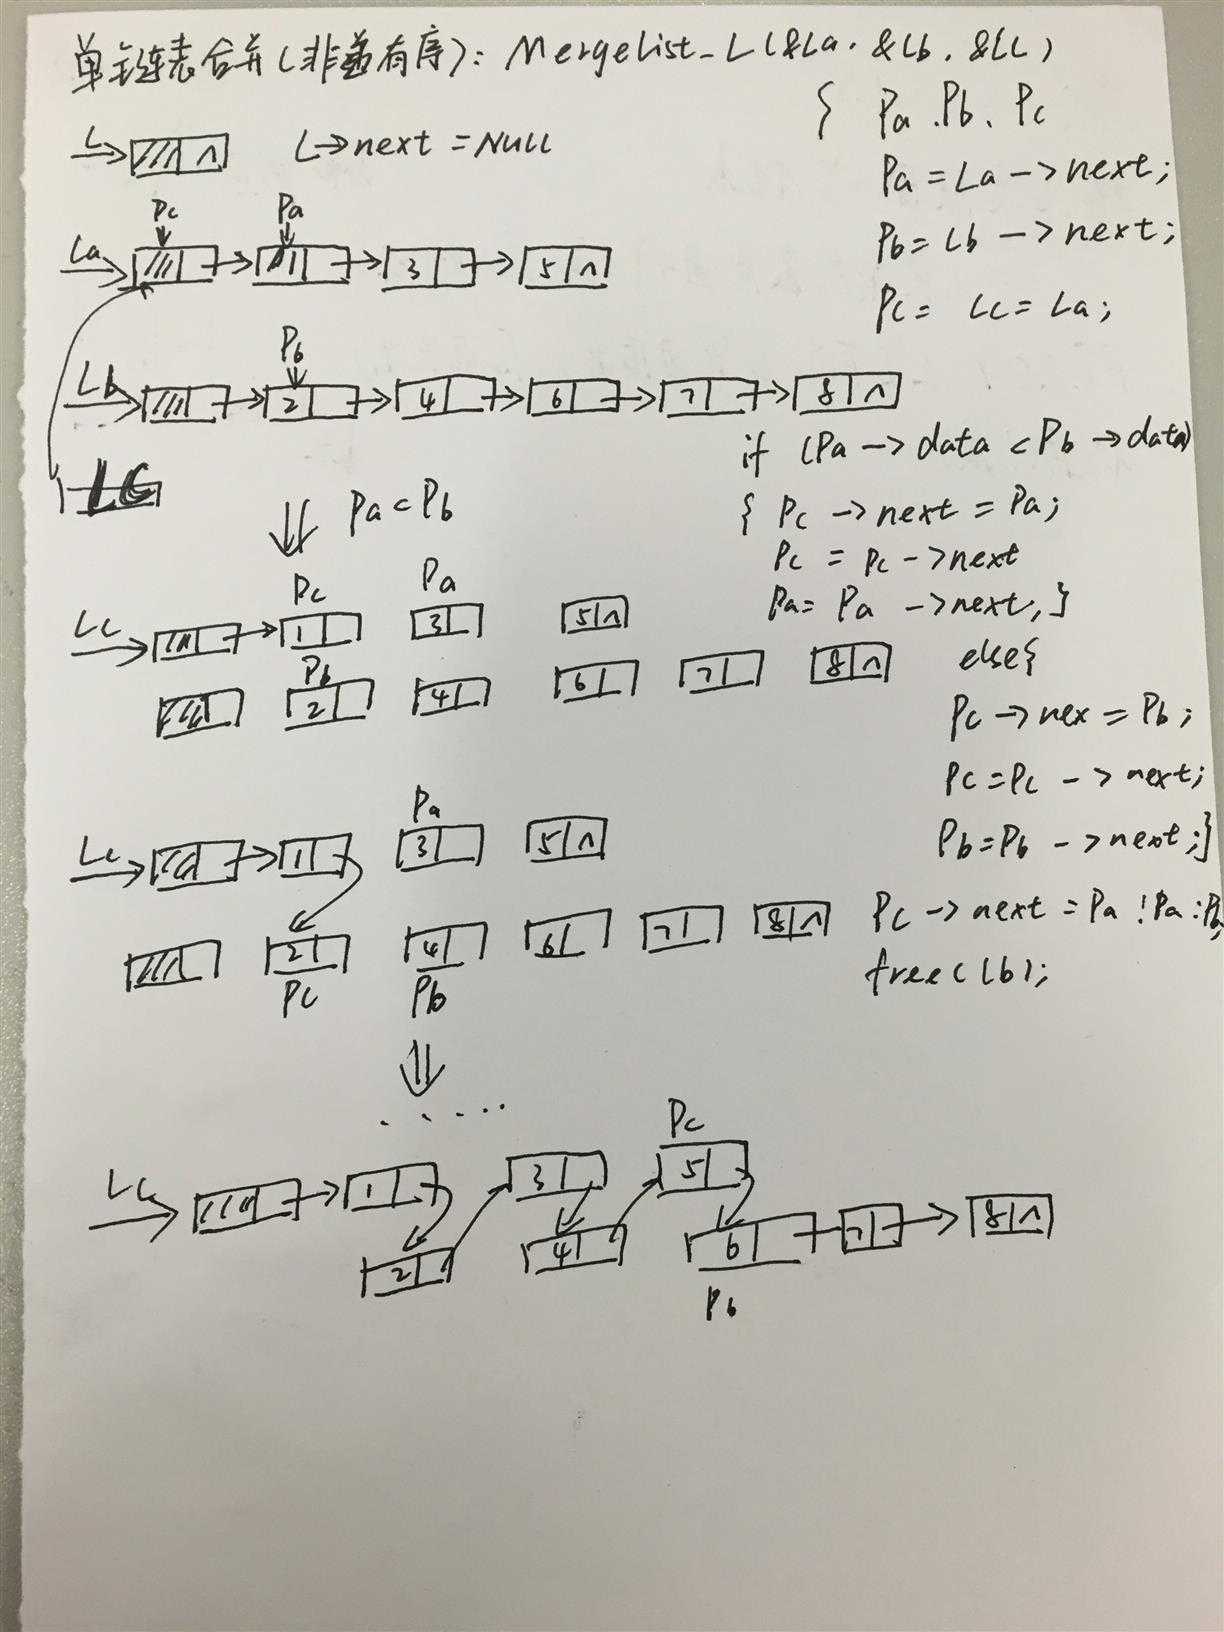 单链表合并(非递有序): MergeList_L(&La. &Lb. &Lc)
{ Pa .Pb、Pc
L ∧ L->next = NULL
Pa = La -> next;
Pc Pa
Pb= Lb -> next;
La 3 5 ∧
Pc= Lc= La;
Pb
Lb 2 4 6 7 8 ∧
if (Pa -> data < Pb -> data)
LC
Pa < Pb
{ Pc -> next = Pa;
Pc = Pc -> next
Pc Pa
Pa= Pa -> next, }
Lc 1 3 5 ∧
else{
Pb
2 4 6 7 8 ∧
Pc -> nex = Pb;
Pc =Pc -> next;
Pa
Lc 1 3 5 ∧
Pb=Pb -> next;}
Pc -> next = Pa ! Pa : Pb;
2 4 6 7 8 ∧
Pc Pb
free(Lb);
.....
Pc
Lc 1 3 5
2 4 6 7 8 ∧
Pb